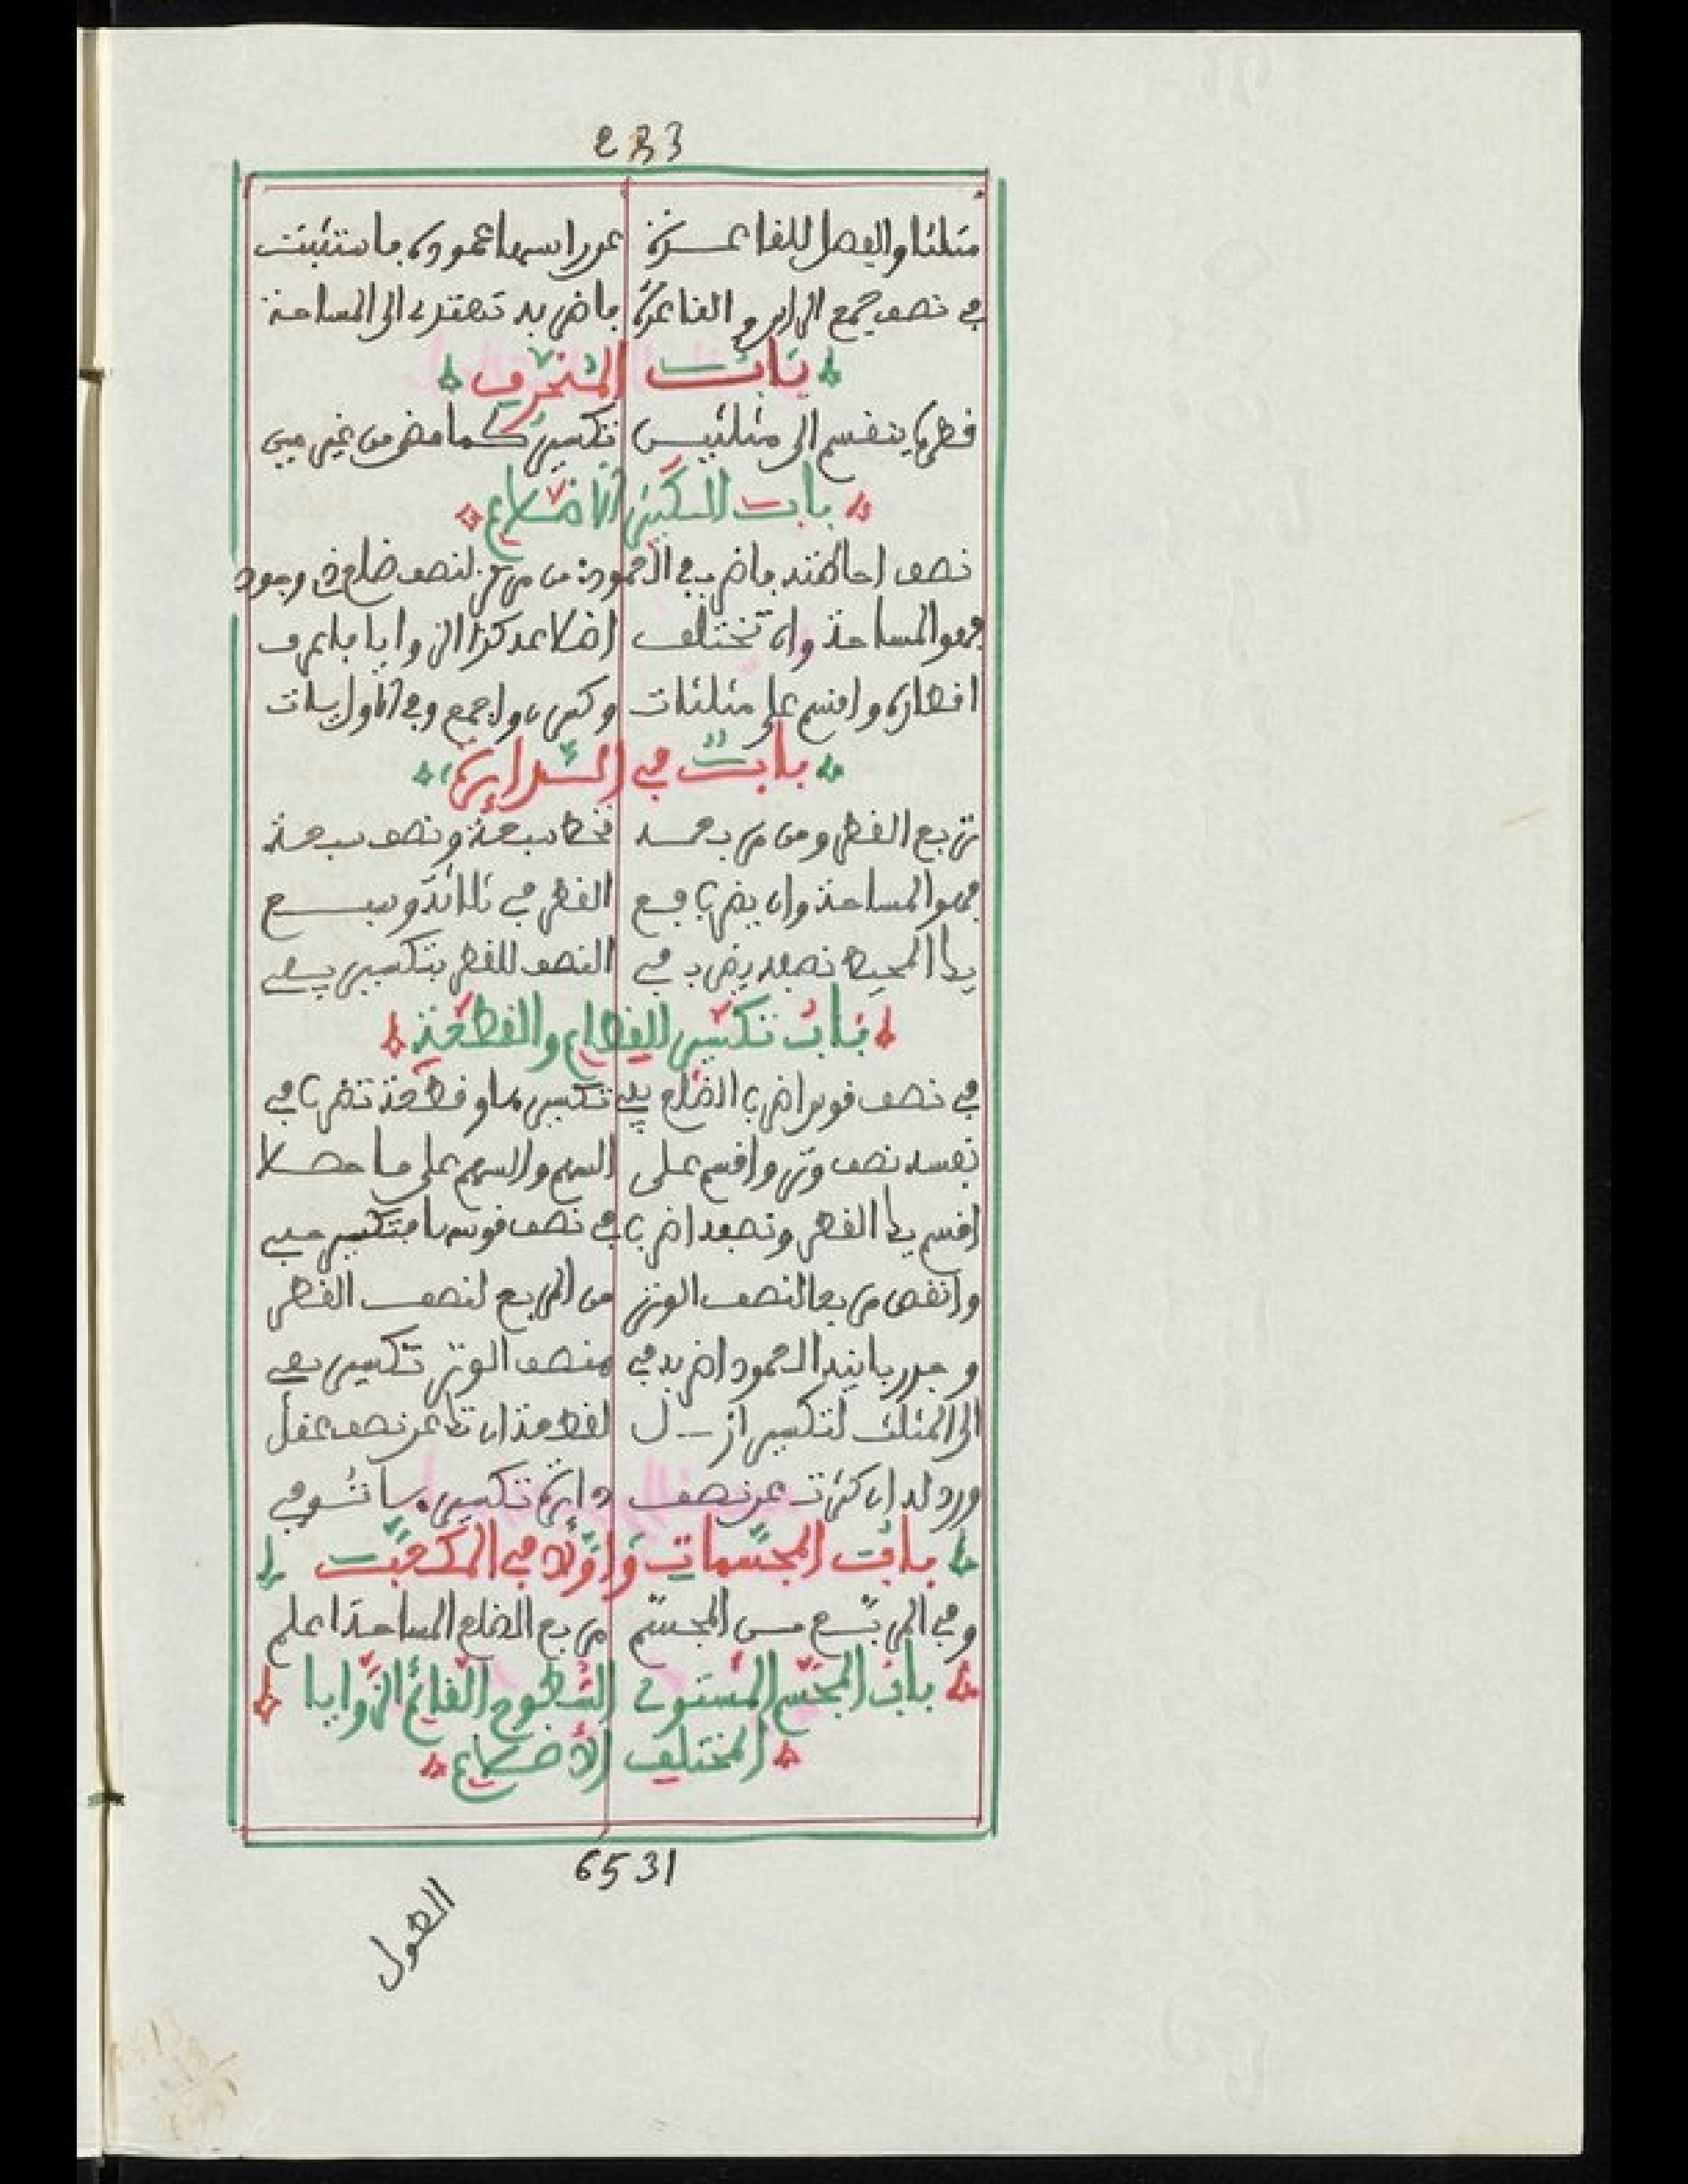 233
مثلثا والفصل للقاعدة عن راسها عموده فاستثبت
في نصف جمع الراس والقاعدة فاضربه تهتدى الى المساحة
باب المنحرف
قطره ينقسم الى مثلثين تكسير كما مضى من غير مين
باب للكثير الاضلاع
نصف احاطته فاضرب في العمود من مركز لنصف ضلع ذي وجود
فهو المساحة وان تختلف اضلاعه كذا الزوايا فاعرف
اقطاره واقسم على مثلثات وكسرن واجمع وفي الاول يات
باب في الدايرة
تربع القطر ومن مربعه تحط سبعة ونصف سبعة
فهو المساحة وان يضرب فع القطر في ثلاثة وسبع
بدا المحيط نصفه يضرب في النصف للقطر بتكسير يفي
باب تكسير للقطاع والقطعة
في نصف قوس اضرب الضلع يلي تكسيرها وقطعة تضرب في
نفسه نصف وتر واقسم على السهم والسهم على ما حصلا
اقسم بدا القطر ونصفه اضرب في نصف قوسها فتكسير حبي
وانقص مربعا لنصف الوتر من المربع لنصف القطر
وجذر باقيه العمود اضربه في منصف الوتر تكسير يفي
الى المثلث لتكسير ازل لقطعة ان تك عن نصف عقل
وزد له ان كثرت عن نصف دايرة تكسيرها
باب المجسمات واولا في المكعبت
وفي المربع من المجسم مربع الضلع المساحة اعلم
باب المجسم المستوى السطوح القائم الزوايا
المختلف الاضلاع
6531
الطول